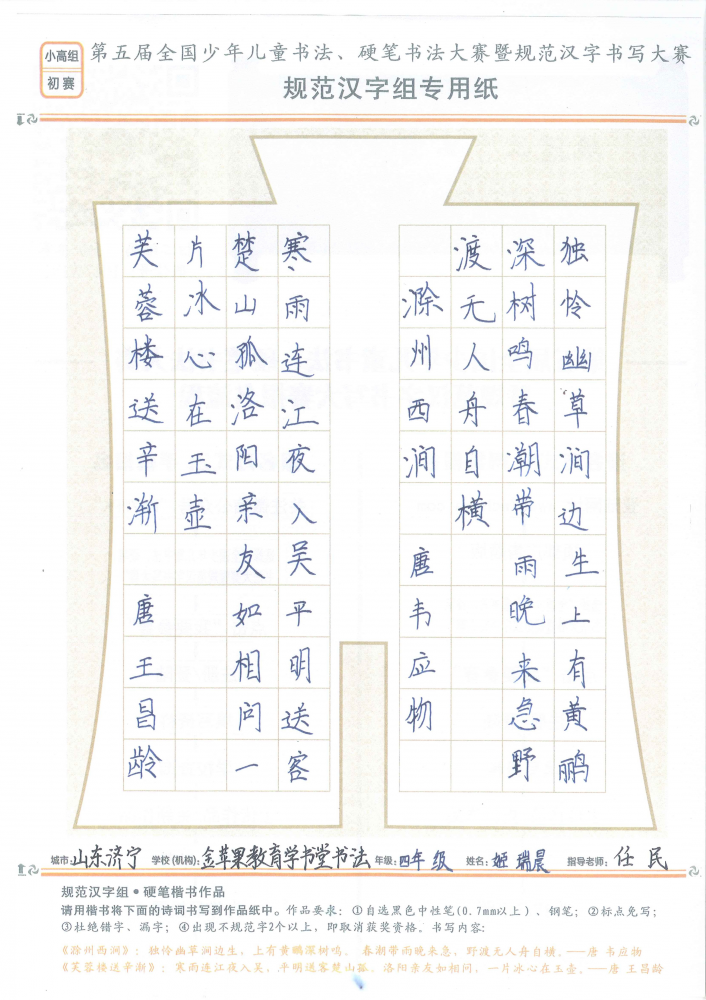 小高组
初赛
第五届全国少年儿童书法、硬笔书法大赛暨规范汉字书写大赛
规范汉字组专用纸
独怜幽草涧边生上有黄鹂
深树鸣春潮带雨晚来急野
渡无人舟自横
滁州西涧 唐韦应物
寒雨连江夜入吴平明送客
楚山孤洛阳亲友如相问一
片冰心在玉壶
芙蓉楼送辛渐 唐王昌龄
城市：山东济宁 学校(机构)：金苹果教育学书堂书法 年级：四年级 姓名：姬瑞晨 指导老师：任民
规范汉字组•硬笔楷书作品
请用楷书将下面的诗词书写到作品纸中。作品要求：①自选黑色中性笔(0.7mm以上)、钢笔；②标点免写；
③杜绝错字、漏字；④出现不规范字2个以上，即取消获奖资格。书写内容：
《滁州西涧》：独怜幽草涧边生，上有黄鹂深树鸣。 春潮带雨晚来急，野渡无人舟自横。——唐 韦应物
《芙蓉楼送辛渐》：寒雨连江夜入吴，平明送客楚山孤。洛阳亲友如相问，一片冰心在玉壶。——唐 王昌龄